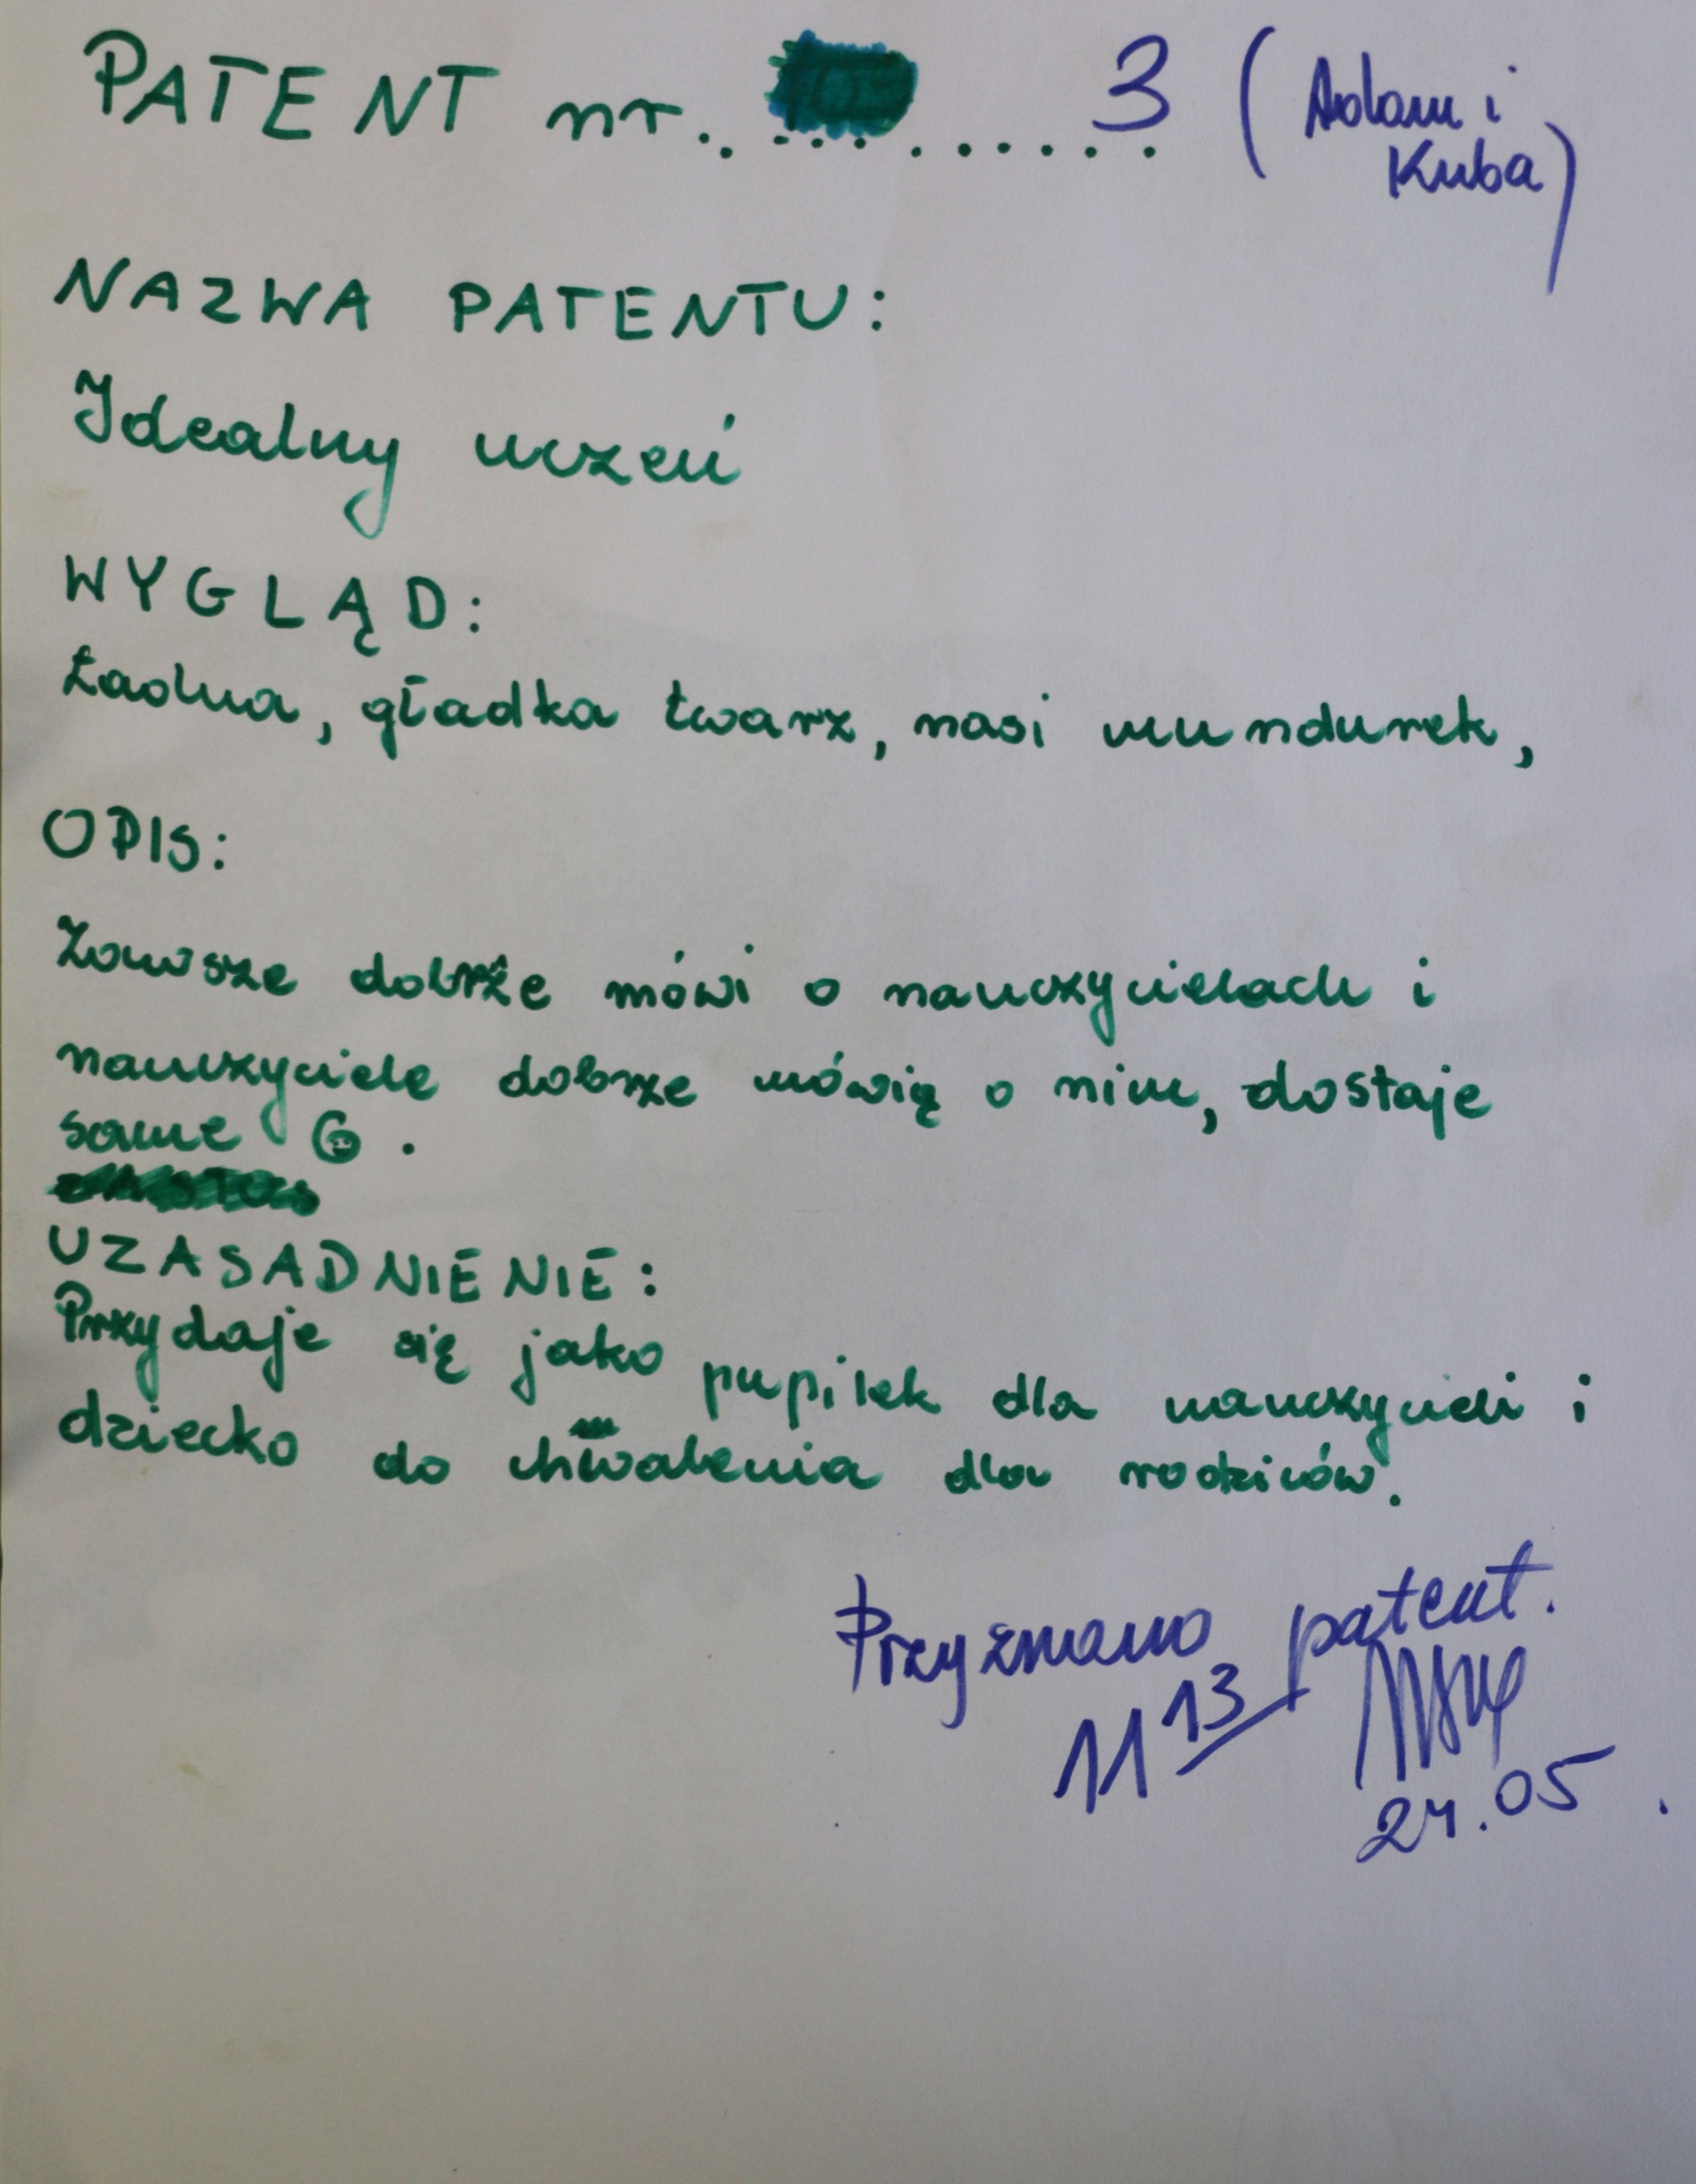 PATENT nr. .......... 3 (Adam i
Kuba)
NAZWA PATENTU:
Idealny uczeń
WYGLĄD:
Ładna, gładka twarz, nosi mundurek,
OPIS:
Zawsze dobrze mówi o nauczycielach i
nauczyciele dobrze mówią o nim, dostaje
same 6.
UZASADNIENIE:
Przydaje się jako pupilek dla nauczycieli i
dziecko do chwalenia dla rodziców.
Przyznano patent.
11 13
24.05.